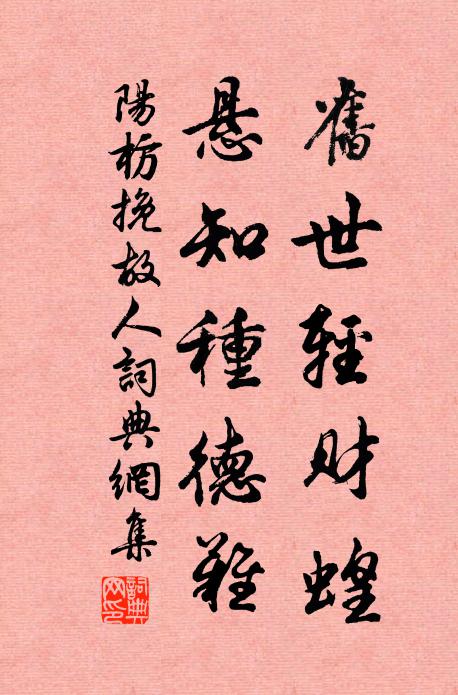 舊世輕財蝗
悬知種德難
陽枋挽故人詞典網集
詞典网印